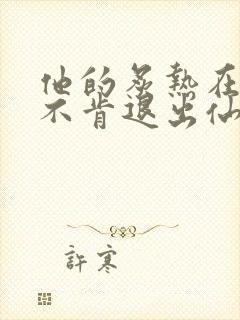 他的炙熱在
不肯退出仙
許寒